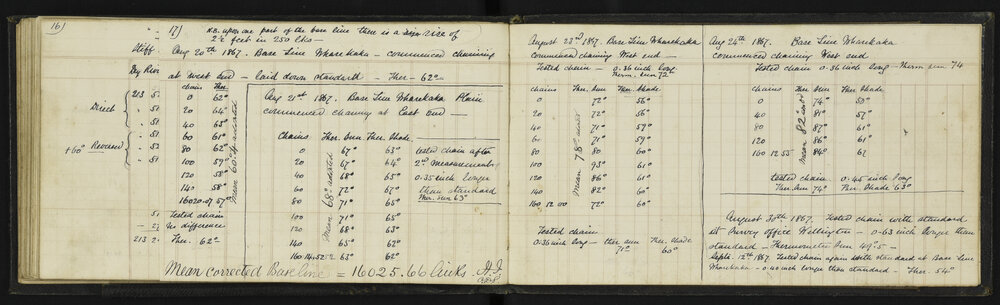 161
17)
N.B. upon one part of the base line there is a rise of
2½ feet in 250 lks —
Stiff
Aug 20th 1867. Base Line Wharekaka - commenced chaining
at west end — laid down standard — Ther - 62°
chains Ther.
0 62°
20 64°
40 65°
60 61°
80 62°
100 59°
120 58°
140 58°
16020.07 57°
Mean 60°
Direct
+60° Reversed
213 5.
Tested chain
no difference
Ther. 62°
213 2.
Aug 21st 1867. Base Line Wharekaka Plain
commenced chaining at East end —
Chains Ther. Sun Ther. Shade
0 67° 63° tested chain after
20 67° 64° 2nd measurement
40 68° 65° 0.35 inch longer
60 72° 67° than standard
80 71° 65° Ther. Sun 63°
100 71° 65°
120 68° 63°
140 65° 62°
63° 62°
Mean 68°
Mean corrected Base line = 16025.66 links.
August 23rd 1867. Base Line Wharekaka
commenced chaining West end —
Tested chain — 0.36 inch long
Therm. sun 72°
chains Ther. Sun Ther. Shade
0 72° 56°
20 72° 56°
40 71° 59°
60 71° 59°
80 80° 60°
100 93° 61°
120 86° 61°
140 82° 60°
160 12.00 72° 60°
Mean 78°
Tested chain
0.36 inch long — ther sun Ther. Shade
71° 60°
Aug 24th 1867. Base Line Wharekaka
commenced chaining West end
Tested chain 0.36 inch long — Therm sun 74
chains Ther Sun Ther. Shade
0 74° 53°
40 81° 57°
80 87° 61°
120 86° 61
160 12.55 84° 61
Mean 82°
tested chain 0.45 inch long
Ther. Sun 74° Ther. Shade 63°
August 30th 1867. Tested chain with standard
at Survey office Wellington — 0.63 inch longer than
standard — Thermometer Sun 49°.5 —
Septr. 12th 1867. Tested chain again with standard at Base Line
Wharekaka - 0.40 inch longer than standard — Ther 54°